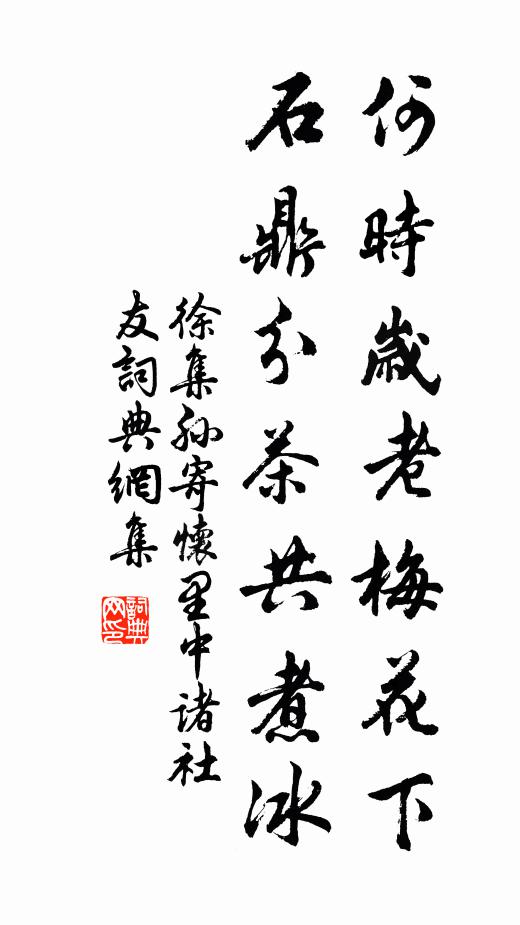 何時歲老梅花下
石鼎分茶共煮冰
徐集孙寄懷里中諸社
友詞典網集
詞典
网印